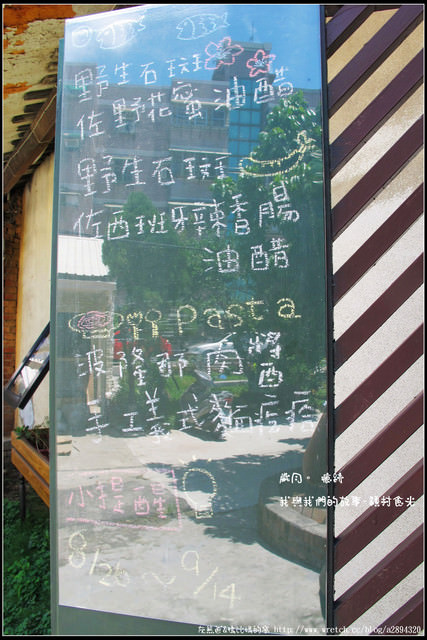 野生石斑
佐野花蜜油醋
野生石斑
佐西班牙辣香腸
油醋
pasta
波隆那肉醬
手工義式麵疙瘩
小提醒
8/26～9/14
我與我們的故事-眷村食光
http://www.wretch.cc/blog/a2894320